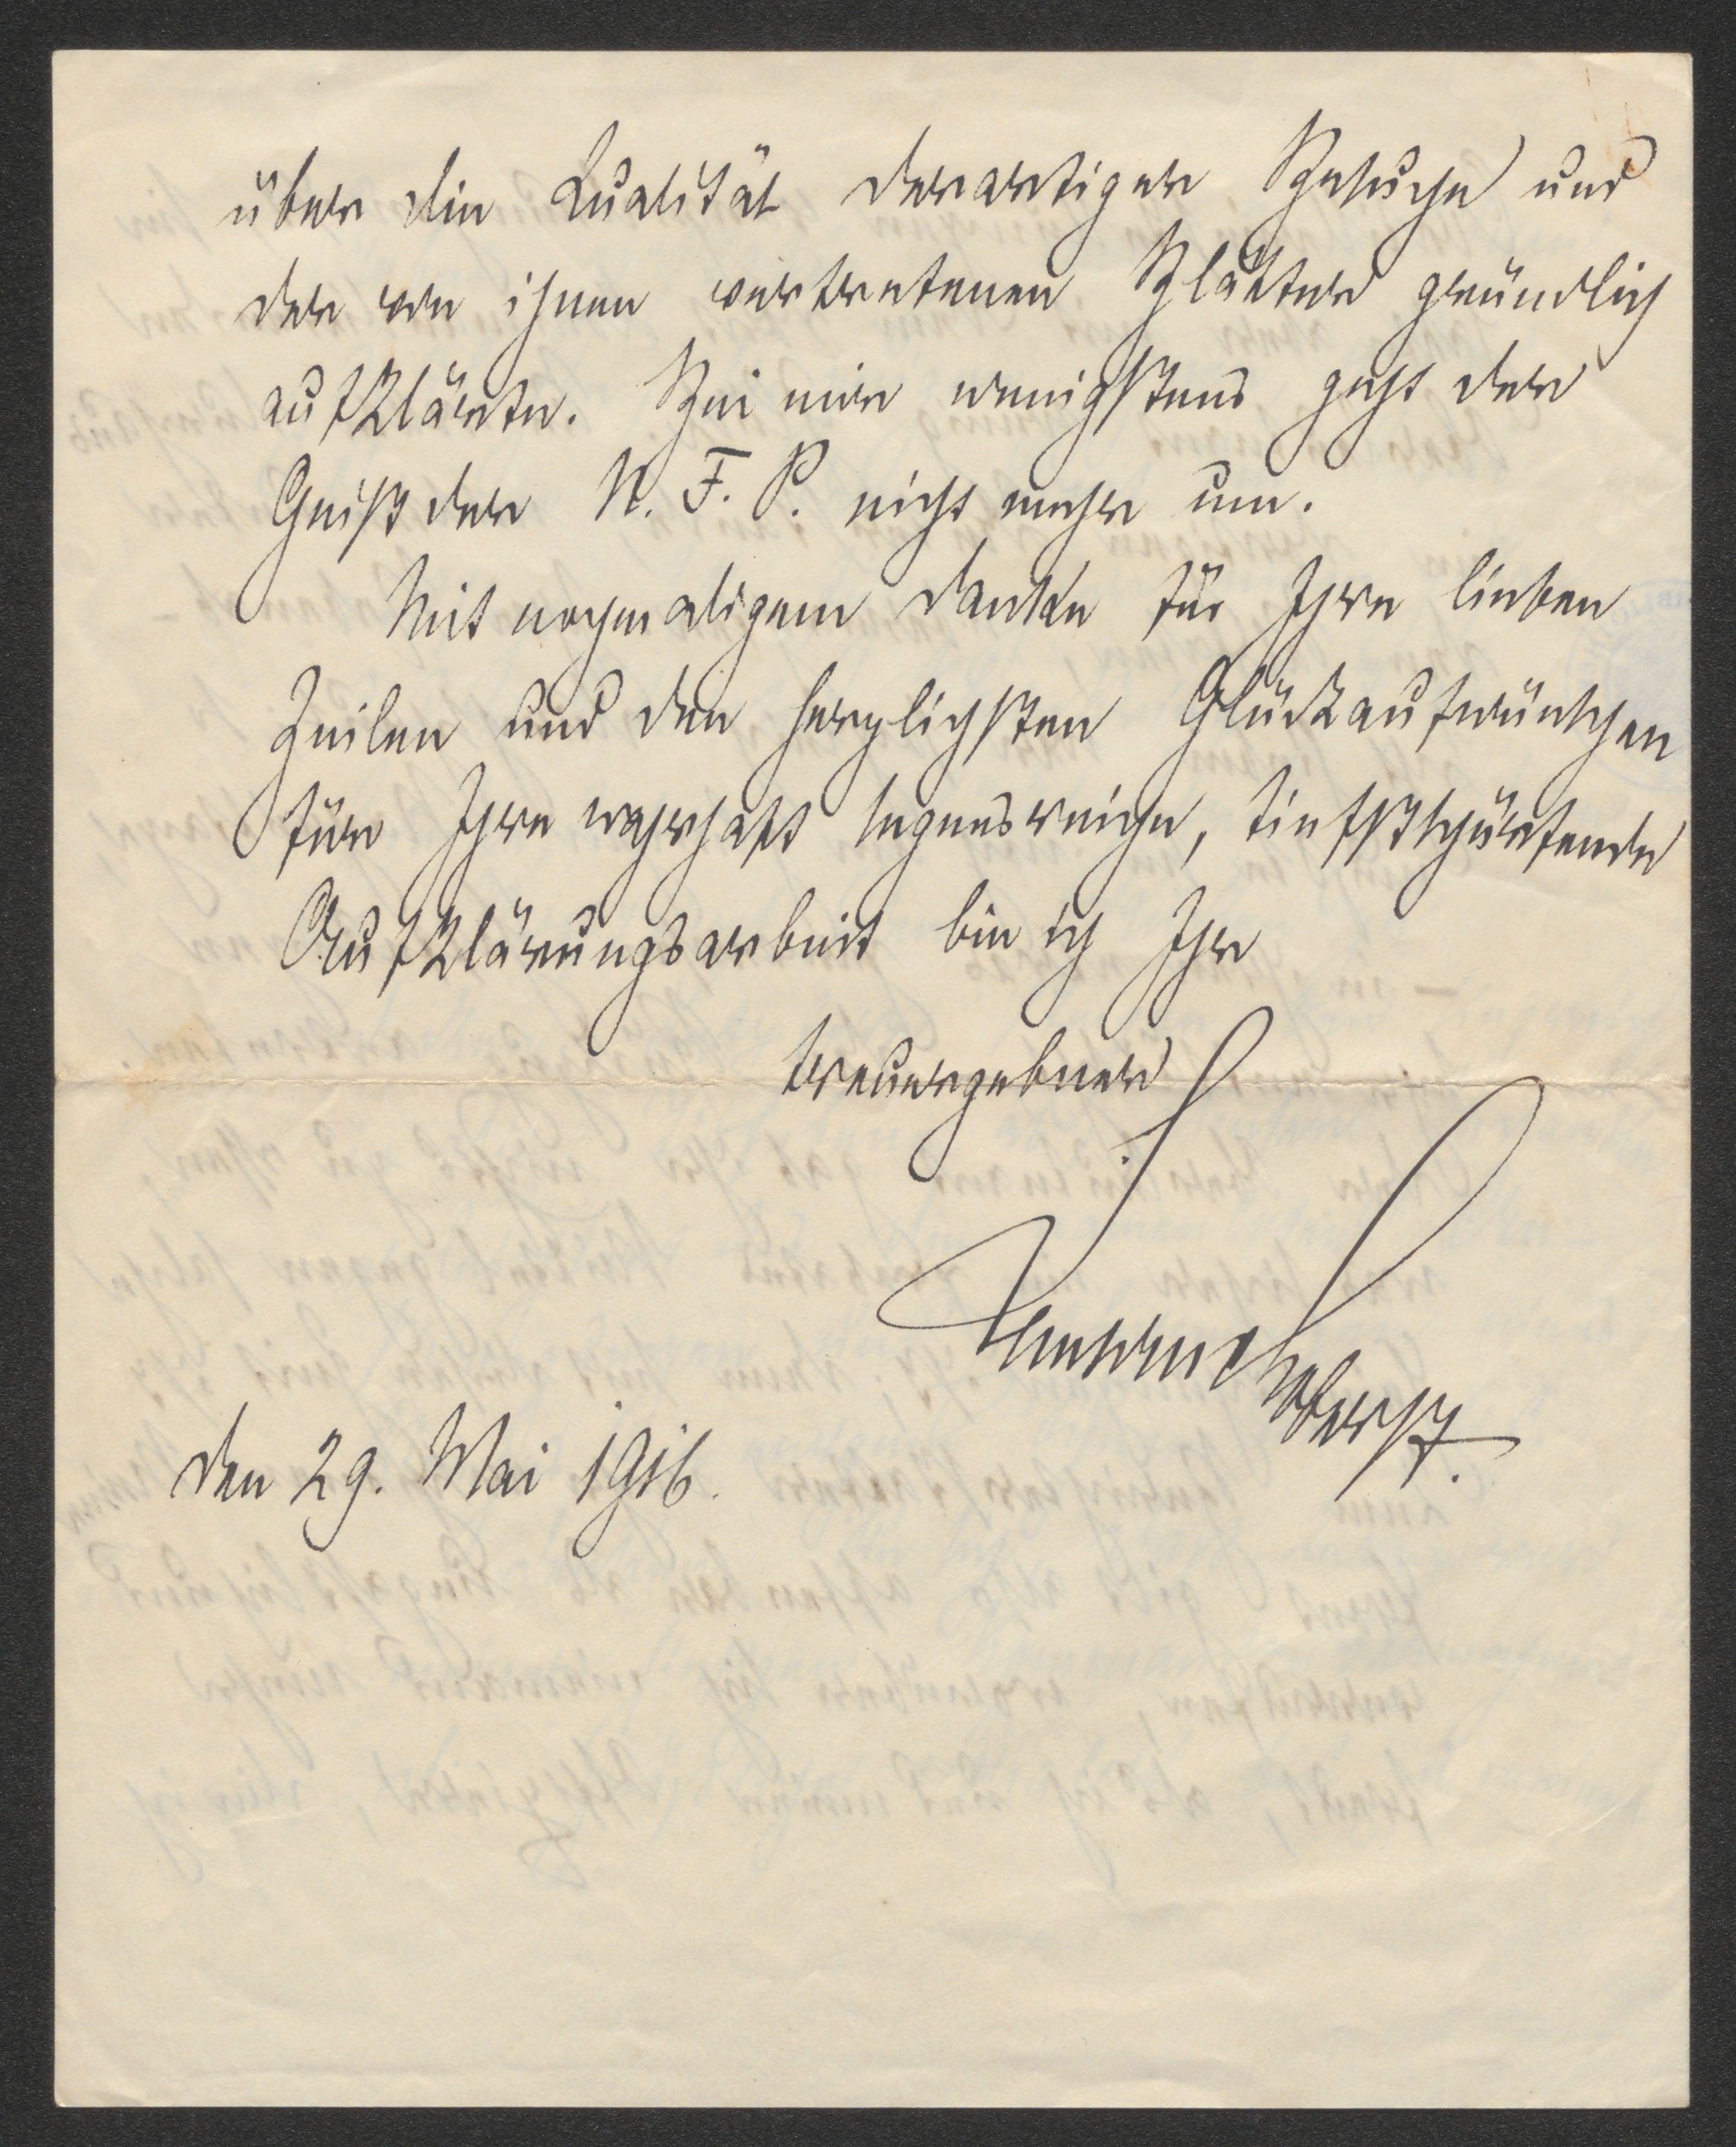 über die Qualität derartiger Besuche und
der von ihnen vertretenen Blätter gründlich
aufklärte. Bei mir wenigstens geht der
Geist der N. F. P. nicht mehr um.
Mit nochmaligem Danke für Ihre lieben
Zeilen und den herzlichsten Glückaufwünschen
für Ihre wahrhaft segensreiche, tiefstschürfende
Aufklärungsarbeit bin ich Ihr
treuergebner
Oberst.
den 29. Mai 1916.